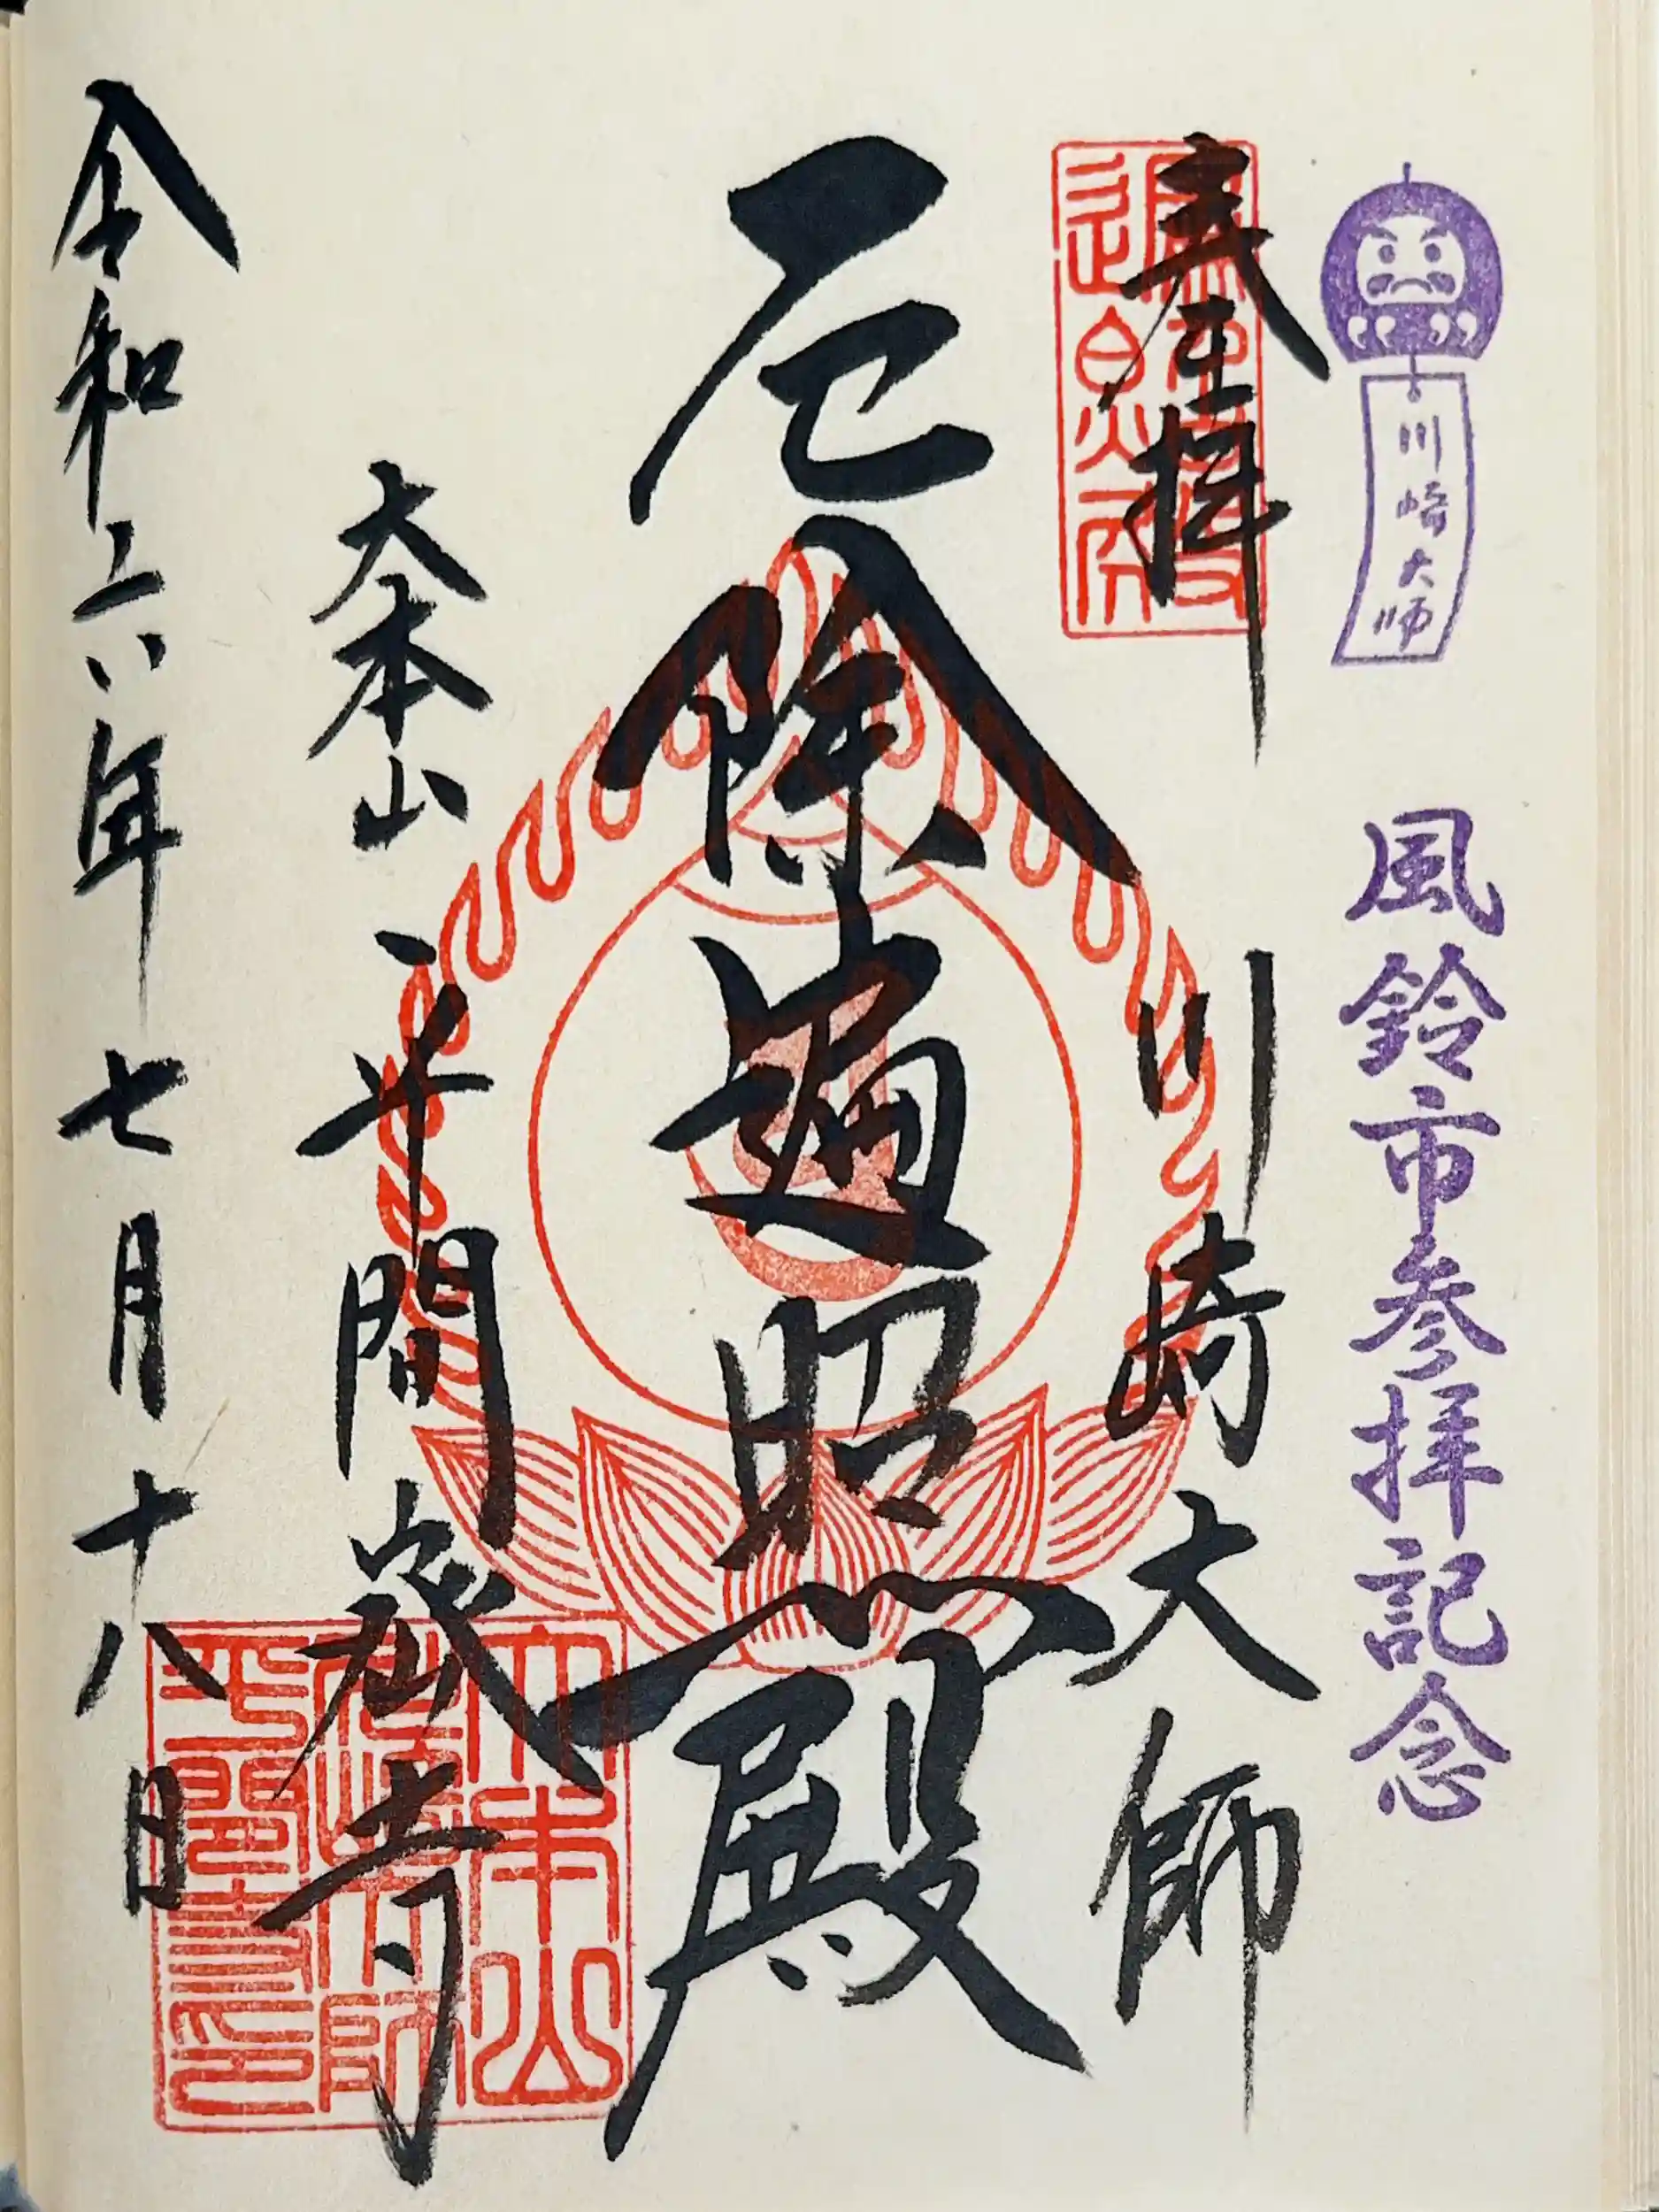 川崎大師
風鈴市参拝記念
奉拝
川崎大師
厄除遍照殿
大本山 平間寺
令和六年七月十八日
大本山
川崎大師
平間寺印